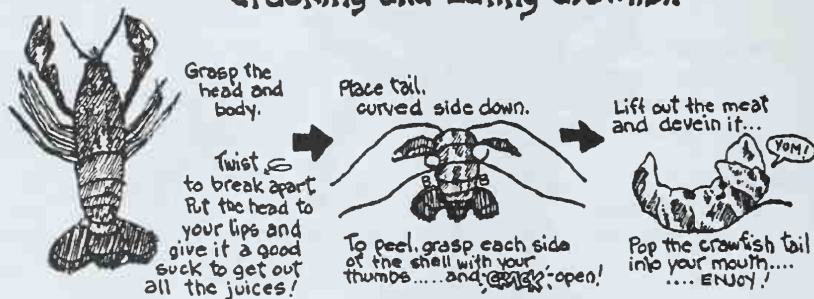 Cracking and Eating Crawfish
Grasp the
head and
body.
Twist
to break apart
Put the head to
your lips and
give it a good
suck to get out
all the juices!
Place tail,
curved side down.
B B
To peel, grasp each side
of the shell with your
thumbs.....and CRACK open!
Lift out the meat
and devein it...
YOM!
Pop the crawfish tail
into your mouth....
.... ENJOY!